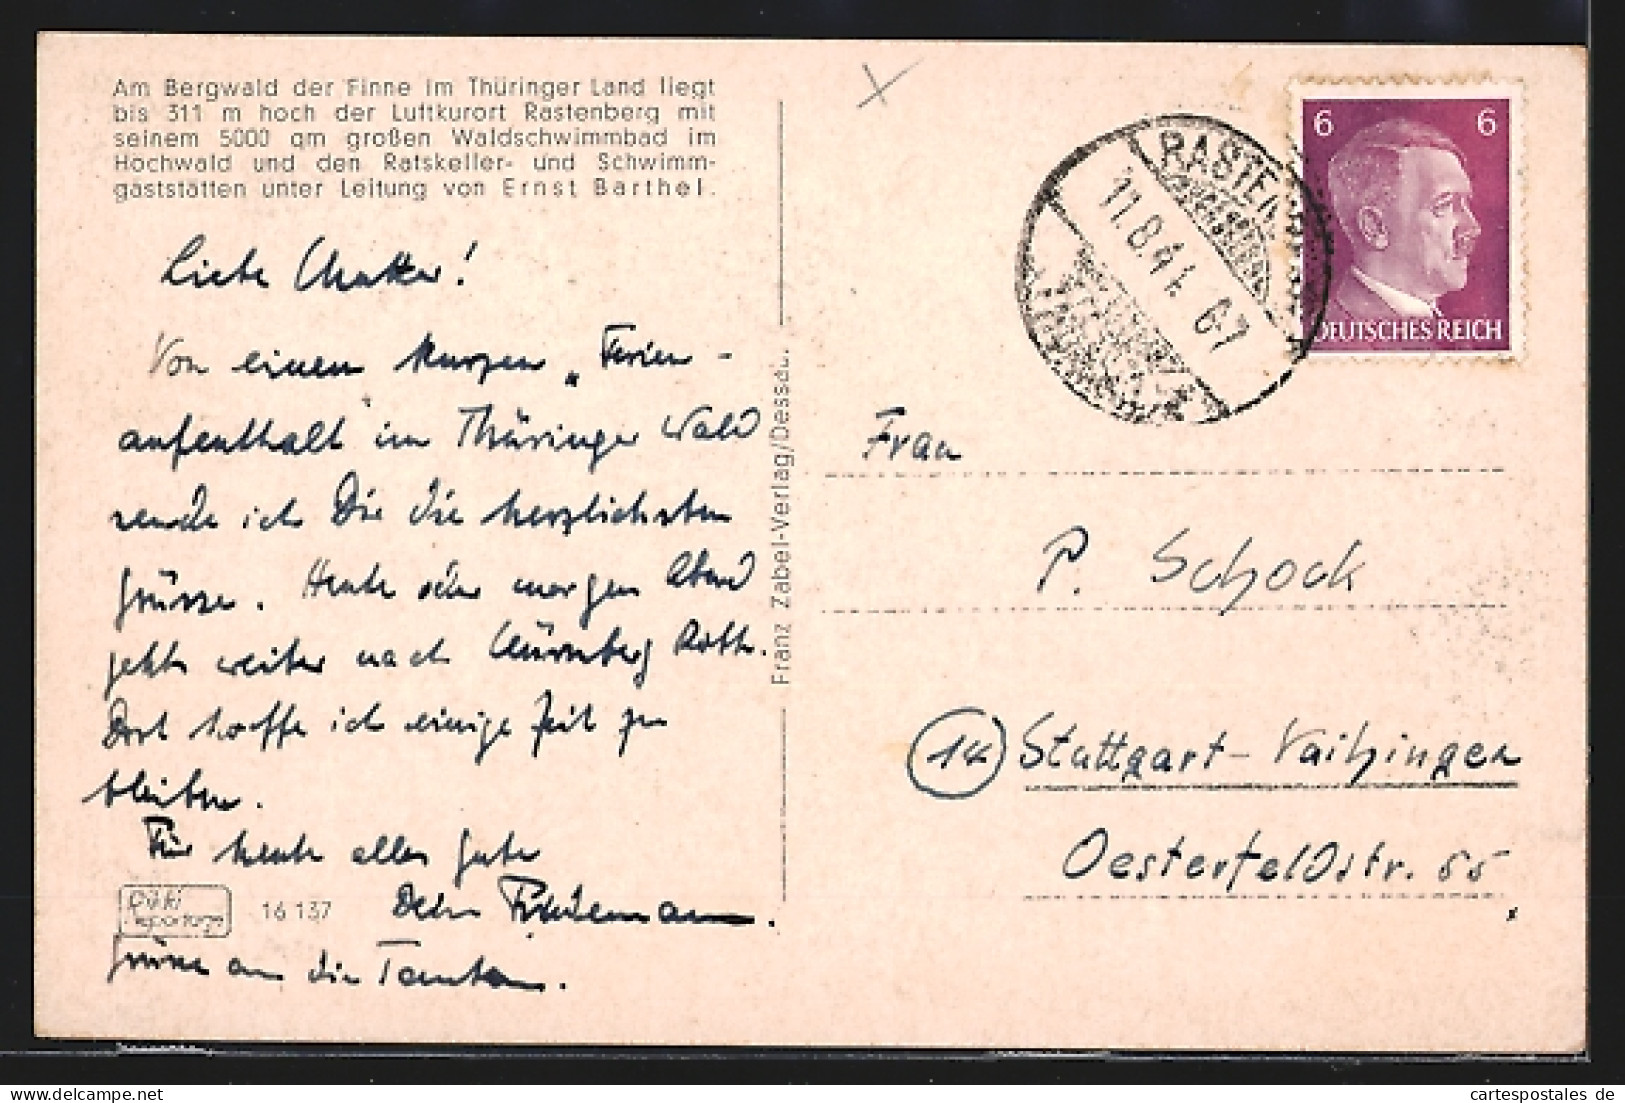 Am Bergwald der Finne im Thüringer Land liegt
bis 311 m hoch der Luftkurort Rastenberg mit
seinem 5000 qm großen Waldschwimmbad im
Hochwald und den Ratskeller- und Schwimm-
gaststätten unter Leitung von Ernst Barthel.
Liebe Mutter!
Von einem kurzen „Ferien-
aufenthalt im Thüringer Wald
sende ich Dir die herzlichsten
Grüsse. Heute oder morgen Abend
geht's weiter nach Nürnberg Roth.
Dort hoffe ich einige Zeit zu
bleiben.
Für heute alles Gute
Dein
Grüsse an die Tanten.
16 137
Franz Zabel-Verlag/Dessau.
RASTENBERG
11.8.41. 6-7
6 6
DEUTSCHES REICH
Frau
P. Schock
(14) Stuttgart-Vaihingen
Oesterfeldstr. 55
cartespostales de